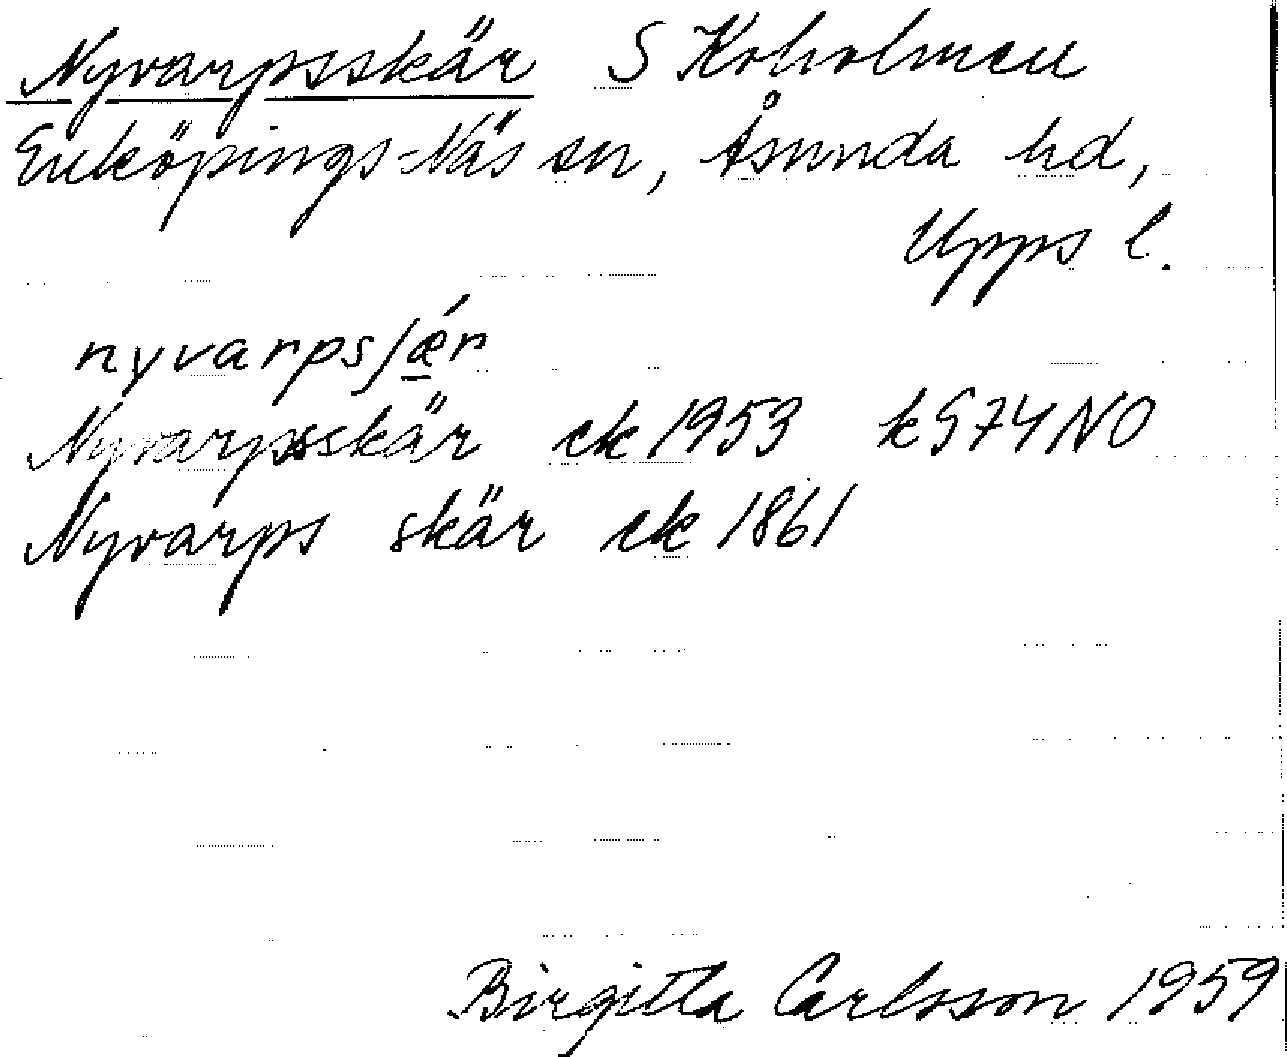 Nyvarpsskär S Koholmen
Enköpings-Näs sn, Åsunda hd,
Upps l.
nyvarpsʃǽr
Nyvarpsskär ek 1953 k 974 NO
Nyvarps skär ek 1861
Birgitta Carlsson 1959